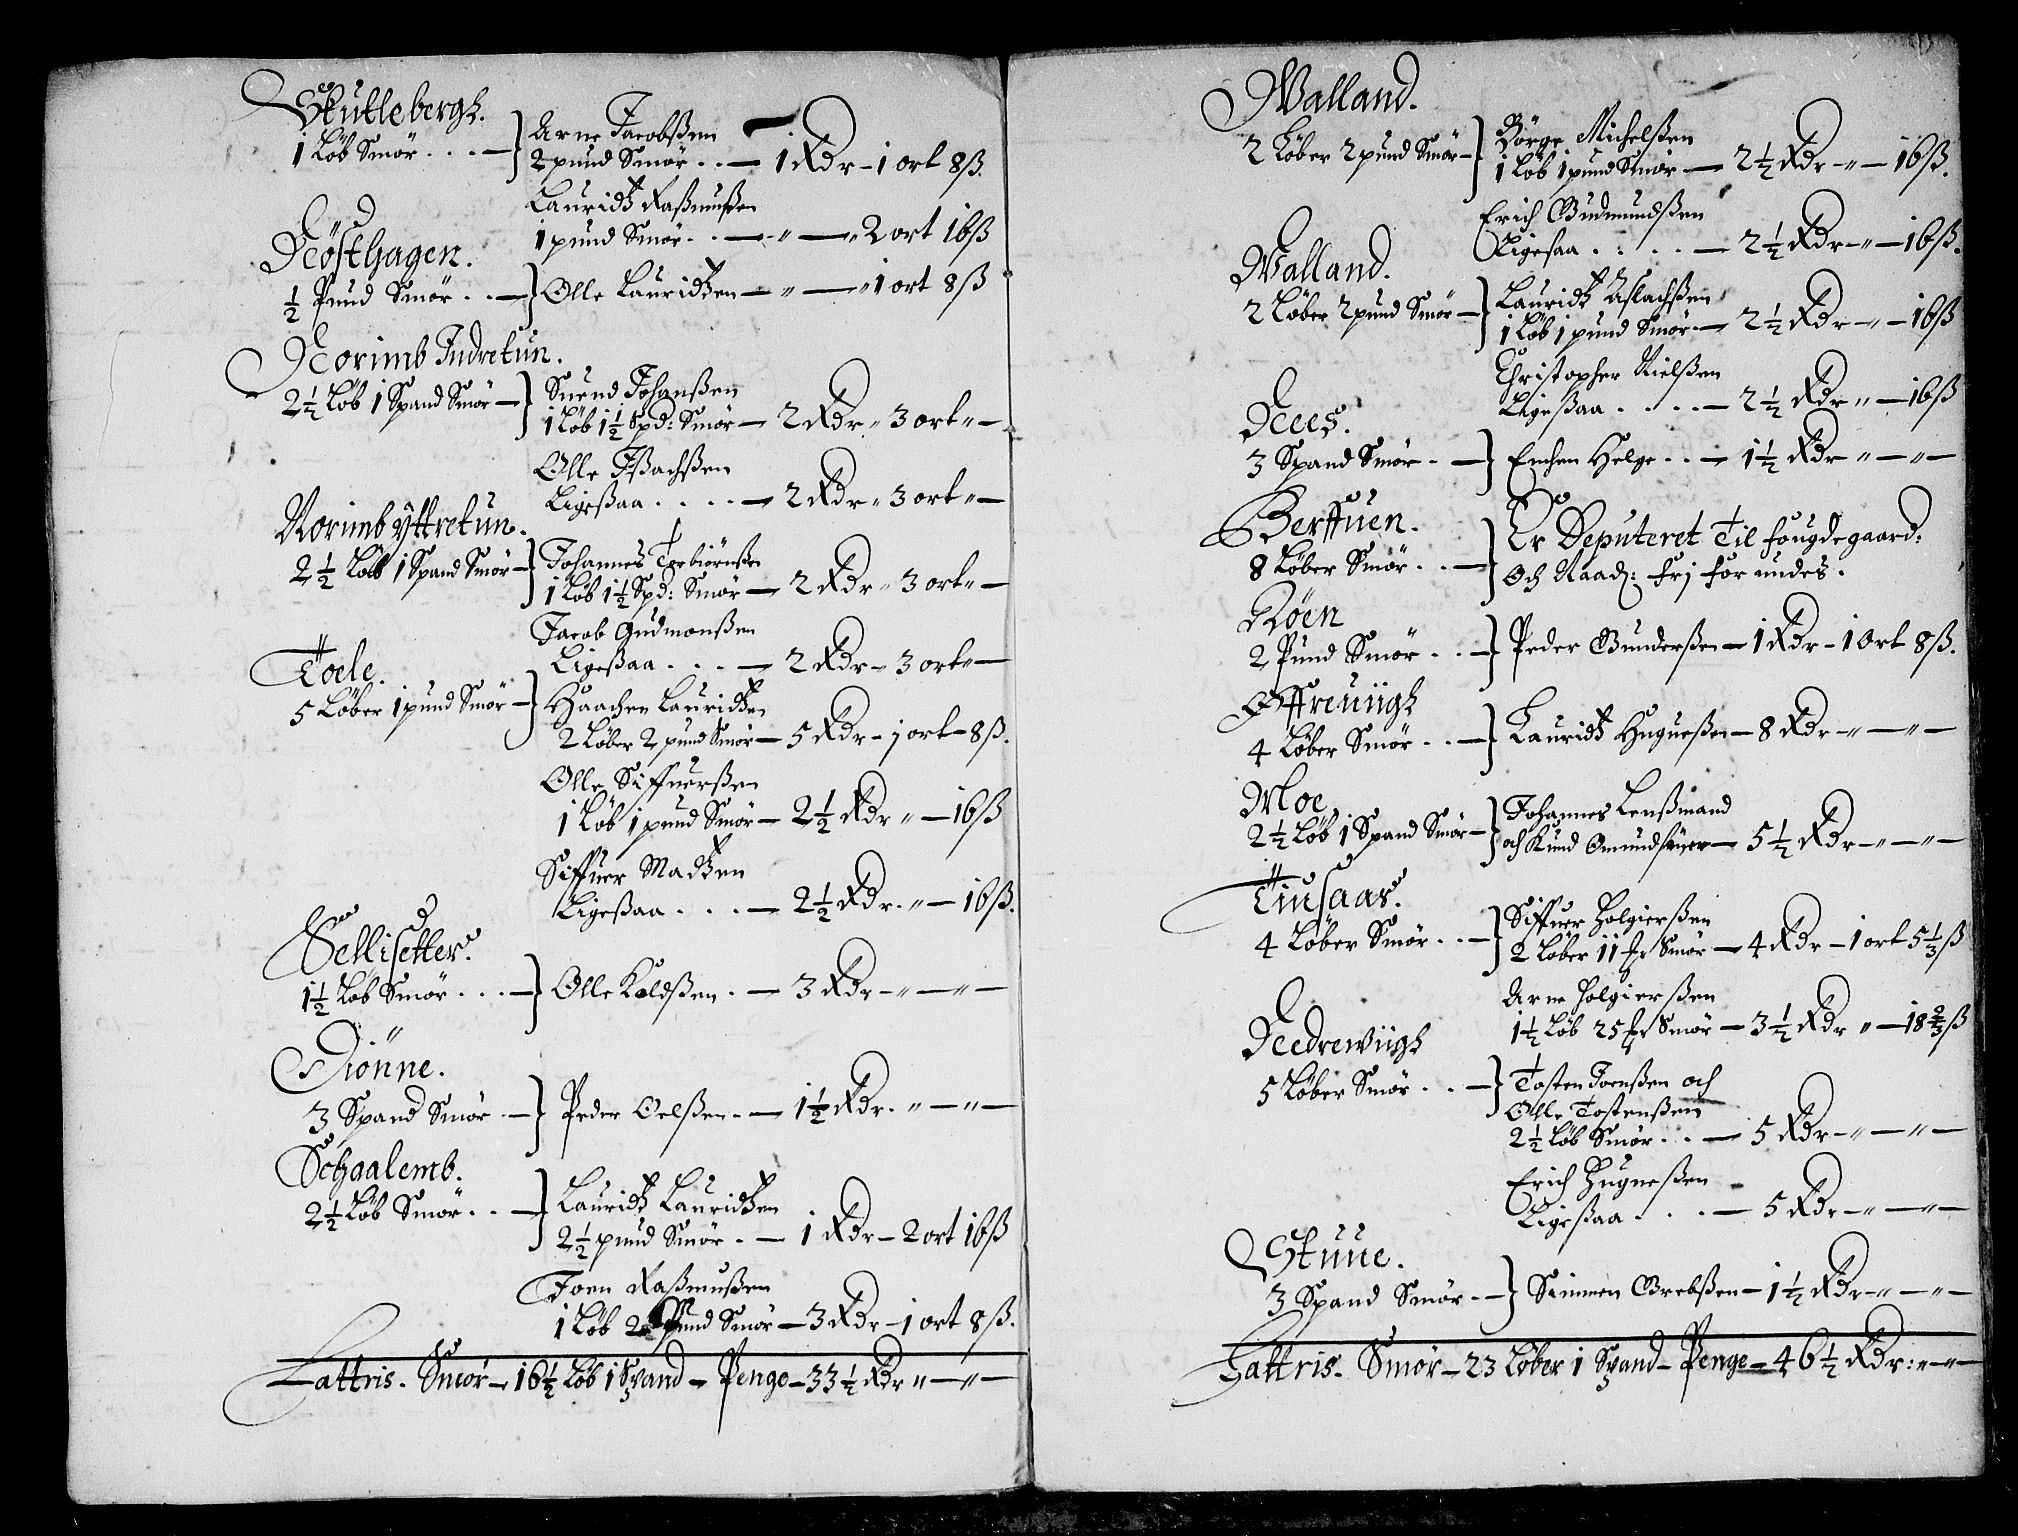 Skutlebergh.
1 Løb Smør . . . — } Arne Jacobßen
2 pund Smør . . — 1 Rdr — 1 ort 8 ß.
Lauridtz Raßmußen
1 pund Smør . . — " — " 2 ort 16 ß
Røsthagen.
½ Pund Smør . . — } Olle Lauridtzen — " — " 1 ort 8 ß
Norimb Indretun.
2½ Løb 1 Spand Smør — } Suend Johanßen
1 Løb 1½ Spd: Smør — 2 Rdr " 3 ort " —
Olle Ißachßen
Ligeßaa . . . . — 2 Rdr " 3 ort " —
Norimb yttretun.
2½ Løb 1 Spand Smør — } Johannes Torbiørnßen
1 Løb 1½ Spd: Smør — 2 Rdr " 3 ort " —
Jacob Gudmonßen
Ligeßaa . . . — 2 Rdr " 3 ort " —
Toele.
5 Løber 1 pund Smør — } Haachen Lauridtzen
2 Løber 2 pund Smør — 5 Rdr — 1 ort — 8 ß.
Olle Siffuerßen
1 Løb 1 pund Smør — 2½ Rdr " — 16 ß
Siffuer Madtzen
Ligeßaa . . . — 2½ Rdr . " — 16 ß.
Sellisetter.
1½ Løb Smør . . . — } Olle Koldßen . — 3 Rdr — " — " —
Diønne.
3 Spand Smør . — } Peder Oelßen . — 1½ Rdr . " — " —
Schaalemb.
2½ Løb Smør . . — } Lauridtz Lauridtzen
2½ pund Smør . — 1 Rdr — 2 ort 16 ß
Joen Raßmußen
1 Løb 2 Pund Smør — 3 Rdr — 1 ort 8 ß.
Lattris. Smør — 16½ Løb 1 Spand — Penge — 33½ Rdr " — " —
Walland.
2 Løber 2 pund Smør — } Børge Michelßen
1 Løb 1 pund Smør — 2½ Rdr — " — 16 ß.
Erich Gudmundßen
Ligesaa . . . . — 2½ Rdr — " — 16 ß.
Walland.
2 Løber 2 pund Smør — } Lauridtz Aslachßen
1 Løb 1 pund Smør — 2½ Rdr — " — 16 ß
Christopher Nielßen
Ligeßaa . . . . — 2½ Rdr " — 16 ß
Nees.
3 Spand Smør . — } Enchen Helge . . — 1½ Rdr " — " —
Berffuen.
8 Løber Smør . . — } Er Deputeret Til fougdegaard:
Och Naad: fri for undes.
Røen
2 Pund Smør . . — } Peder Gunderßen — 1 Rdr — 1 Ort 8 ß.
Offreuiigh
4 Løber Smør . . — } Lauridtz Hugueßen — 8 Rdr — " — " —
Moe
2½ Løb 1 Spand Smør — } Johannes Lenßmand
och Knud Omund — 5½ Rdr — " — " —
Tiusaas.
4 Løber Smør . . — } Siffuer Holgierßen
2 Løber 11 Smør — 4 Rdr — 1 ort 5⅓ ß
Arne Holgierßen
1½ Løb 25 Smør — 3½ Rdr " — 18⅔ ß
Nedrewiigh
5 Løber Smør . . — } Tosten Joenßen och
Olle Tostenßen
2½ Løb Smør . . — 5 Rdr — " — " —
Erich Hugneßen
Ligeßaa . . . — 5 Rdr — " — " —
Stuue.
3 Spand Smør . — } Simmen Grebßen — 1½ Rdr — " — " —
Lattris. Smør — 23 Løber 1 Spand — Penge — 46½ Rdr : " — " —